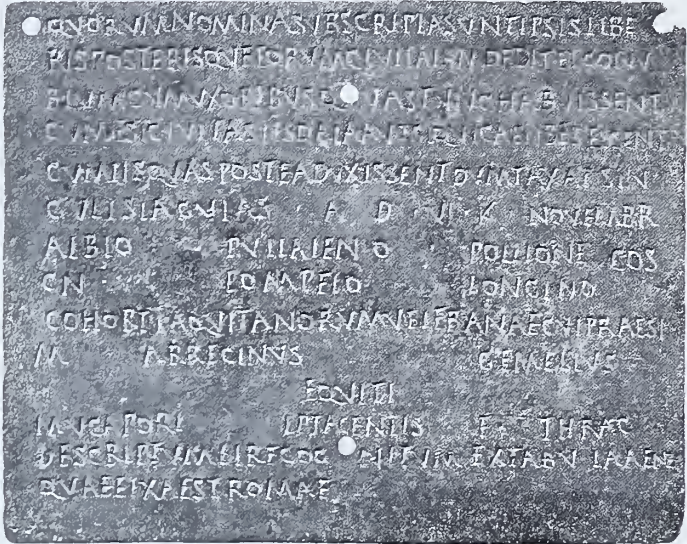 QVORVM NOMINA SVBSCRIPTA SVNT IPSIS LIBE
RIS POSTERISQVE EORVM CIVITATEM DEDIT ET CONV
BIVM CVM VXORIBVS QVAS TVNC HABVISSENT
CVM EST CIVITAS IIS DATA AVT CAELIBES ESSENT
CVM IIS QVAS POSTEA DVXISSENT DVMTAXAT SIN
GVLI SINGVLAS A D VI K NOVEMBR
ALBIO PVLLAIENO POLLIONE COS
CN POMPEIO LONGINO
COHORT I AQVITANORVM VETERANAE CVI PRAEST
M ARRECINVS GEMELLVS
EQVITI
MVCAPORI EPTACENTIS F THRAC
DESCRIPTVM ET RECOGNITVM EX TABVLA AENE
QVAE FIXA EST ROMAE